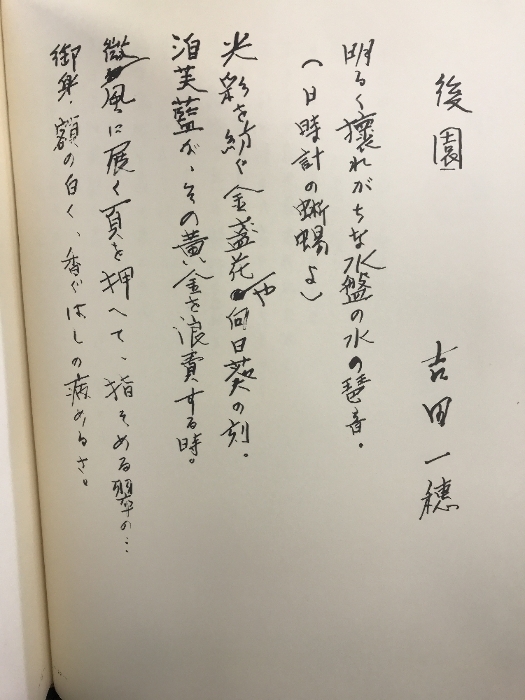 後園
吉田一穂
明るく壊れがちな水盤の水の琶音。
(日時計の蜥蜴よ)
光彩を紡ぐ金盞花や向日葵の刻。
泊芙藍が、その黄金を浪費する時。
微風に展く頁を押へて、指そめる翠の…
御身、額の白く、香ぐはしの病めるさ。